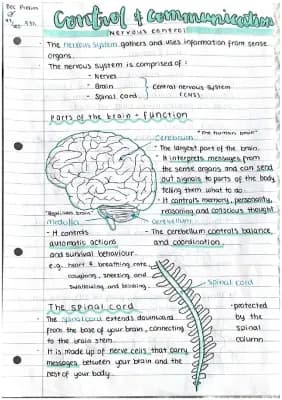 Control & Communication
(nervous control)
· The nervous system gathers and uses information from sense
organs.
· The nervous system is comprised of:
- Nerves
- Brain
- Spinal cord
Central nervous system
(CNS).
Parts of the brain + Function
"The human brain"
Cerebrum
- The largest part of the brain.
- It interprets messages from
the sense organs and can send
out signals to parts of the body
telling them what to do.
- It controls memory, personality,
reasoning and conscious thought
"Reptilian brain"
Medulla
- It controls
automatic actions
and survival behaviour.
e.g. heart & breathing rate,
coughing, sneezing and
swallowing and
Cerebellum
- The cerebellum controls balance
and coordination.
Spinal cord
The spinal cord
· The spinal cord extends downward
from the base of your brain, connecting
to the brain stem.
· It is made up of nerve cells that carry
messages between your brain and the
rest of your body.
- protected
by the
spinal
column.